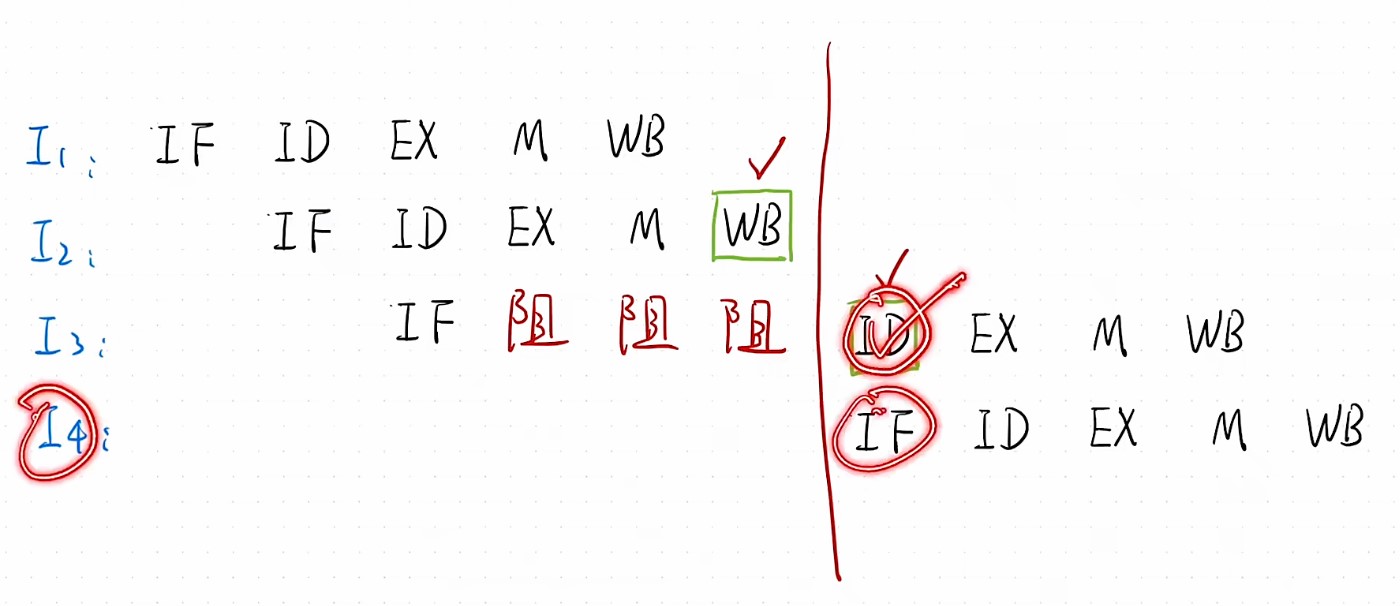 I1: IF ID EX M WB
I2: IF ID EX M WB
I3: IF 阻 阻 阻 ID EX M WB
I4: IF ID EX M WB